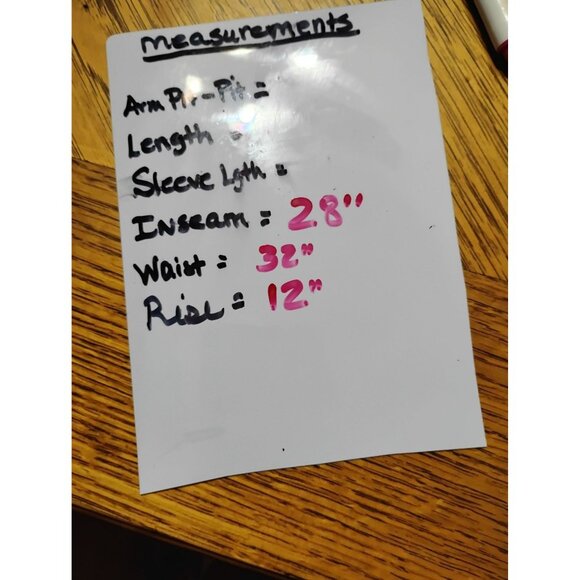 measurements
Arm Pit-Pit =
Length =
Sleeve Lgth =
Inseam = 28"
Waist = 32"
Rise = 12"